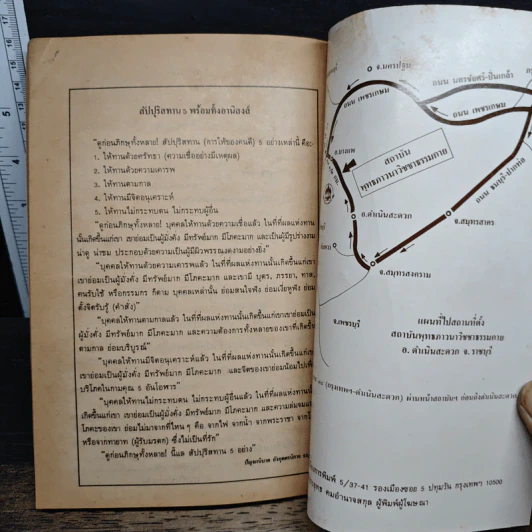 สัปปุริสทาน 5 พร้อมทั้งอานิสงส์
"ดูก่อนภิกษุทั้งหลาย! สัปปุริสทาน (การให้ของคนดี) 5 อย่างเหล่านี้ คือ:-
1. ให้ทานด้วยศรัทธา (ความเชื่ออย่างมีเหตุผล)
2. ให้ทานด้วยความเคารพ
3. ให้ทานตามกาล
4. ให้ทานมีจิตอนุเคราะห์
5. ให้ทานไม่กระทบตน ไม่กระทบผู้อื่น
"ดูก่อนภิกษุทั้งหลาย! บุคคลให้ทานด้วยความเชื่อแล้ว ในที่ที่ผลแห่งทาน
นั้นเกิดขึ้นแก่เขา เขาย่อมเป็นผู้มั่งคั่ง มีทรัพย์มาก มีโภคะมาก และเป็นผู้มีรูปร่างงาม
น่าดู น่าชม ประกอบด้วยความเป็นผู้มีผิวพรรณงดงามอย่างยิ่ง"
"บุคคลให้ทานด้วยความเคารพแล้ว ในที่ที่ผลแห่งทานนั้นเกิดขึ้นแก่
เขาย่อมเป็นผู้มั่งคั่ง มีทรัพย์มาก มีโภคะมาก และเขามี บุตร, ภรรยา, ทาส,
คนรับใช้ หรือกรรมกร ก็ตาม บุคคลเหล่านั้น ย่อมสนใจฟัง ย่อมเงี่ยหูฟัง ย่อม
ตั้งจิตรับรู้ (คำสั่ง)"
"บุคคลให้ทานตามกาลแล้ว ในที่ที่ผลแห่งทานนั้นเกิดขึ้นแก่เขา เขาย่อมเป็น
ผู้มั่งคั่ง มีทรัพย์มาก มีโภคะมาก และความต้องการทั้งหลายของเขาที่เกิดขึ้น
ตามกาล ย่อมบริบูรณ์"
"บุคคลให้ทานมีจิตอนุเคราะห์แล้ว ในที่ที่ผลแห่งทานนั้นเกิดขึ้นแก่เขา
เขาย่อมเป็นผู้มั่งคั่ง มีทรัพย์มาก มีโภคะมาก และจิตของเขาย่อมน้อมไปเพื่อ
บริโภคในกามคุณ 5 อันโอฬาร"
"บุคคลให้ทานไม่กระทบตน ไม่กระทบผู้อื่นแล้ว ในที่ที่ผลแห่งทานนั้น
เกิดขึ้นแก่เขา เขาย่อมเป็นผู้มั่งคั่ง มีทรัพย์มาก มีโภคะมาก และความ
โภคะของเขา ย่อมไม่มาจากที่ไหน ๆ คือ จากไฟ จากน้ำ จากพระราชา จาก
หรือจากทายาท (ผู้รับมรดก) ซึ่งไม่เป็นที่รัก"
"ดูก่อนภิกษุทั้งหลาย! นี้แล สัปปุริสทาน 5 อย่าง"
จ.นครปฐม
ถนน นครชัยศรี-ปิ่นเกล้า
ถนน เพชรเกษม
ถนน เพชรเกษม
อ.บางแพ
สถาบัน
พุทธภาวนาวิชชาธรรมกาย
ถนน ธนบุรี-ปากท่อ
อ.ดำเนินสะดวก
จ.สมุทรสาคร
จ.สมุทรสงคราม
จ.เพชรบุรี
แผนที่ไปสถานที่ตั้ง
สถาบันพุทธภาวนาวิชชาธรรมกาย
อ. ดำเนินสะดวก จ. ราชบุรี
(กรุงเทพฯ-ดำเนินสะดวก) ผ่านหน้าสถาบันฯ ก่อนถึงดำเนินสะดวก
การพิมพ์ 5/37-41 รองเมืองซอย 5 ปทุมวัน กรุงเทพฯ 10500
คมอำนาจสกุล ผู้พิมพ์ผู้โฆษณา
5
17